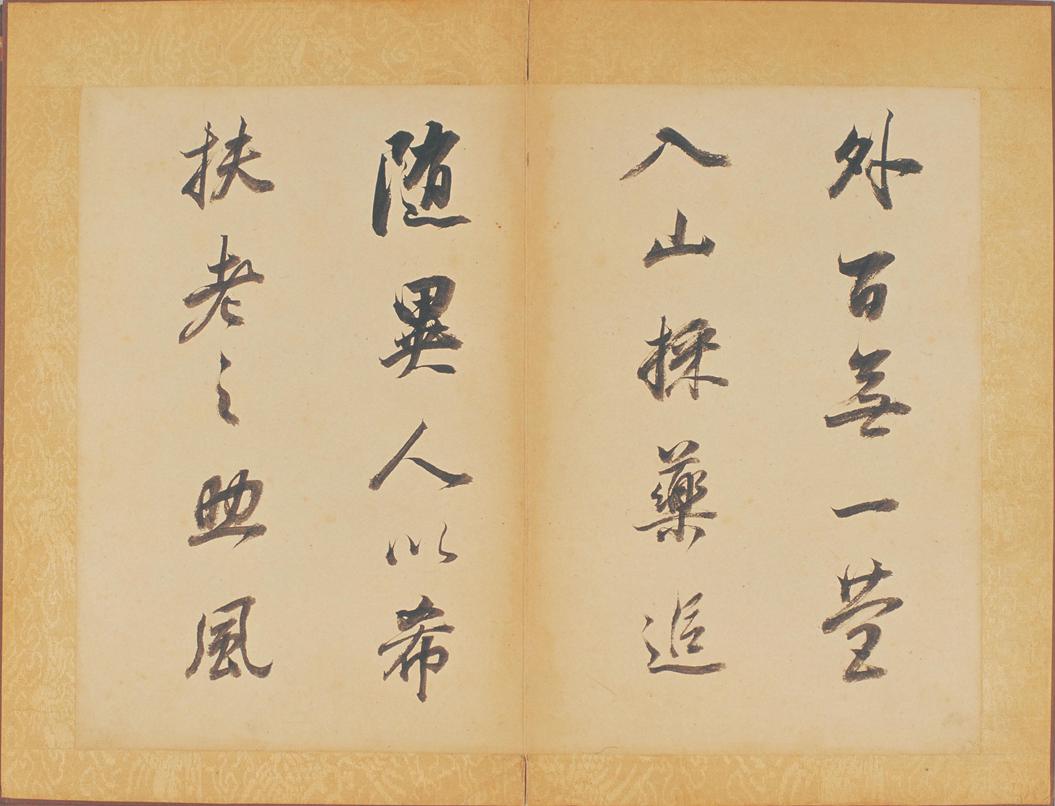 外百無一營
入山採藥追
随異人以希
扶老之助風